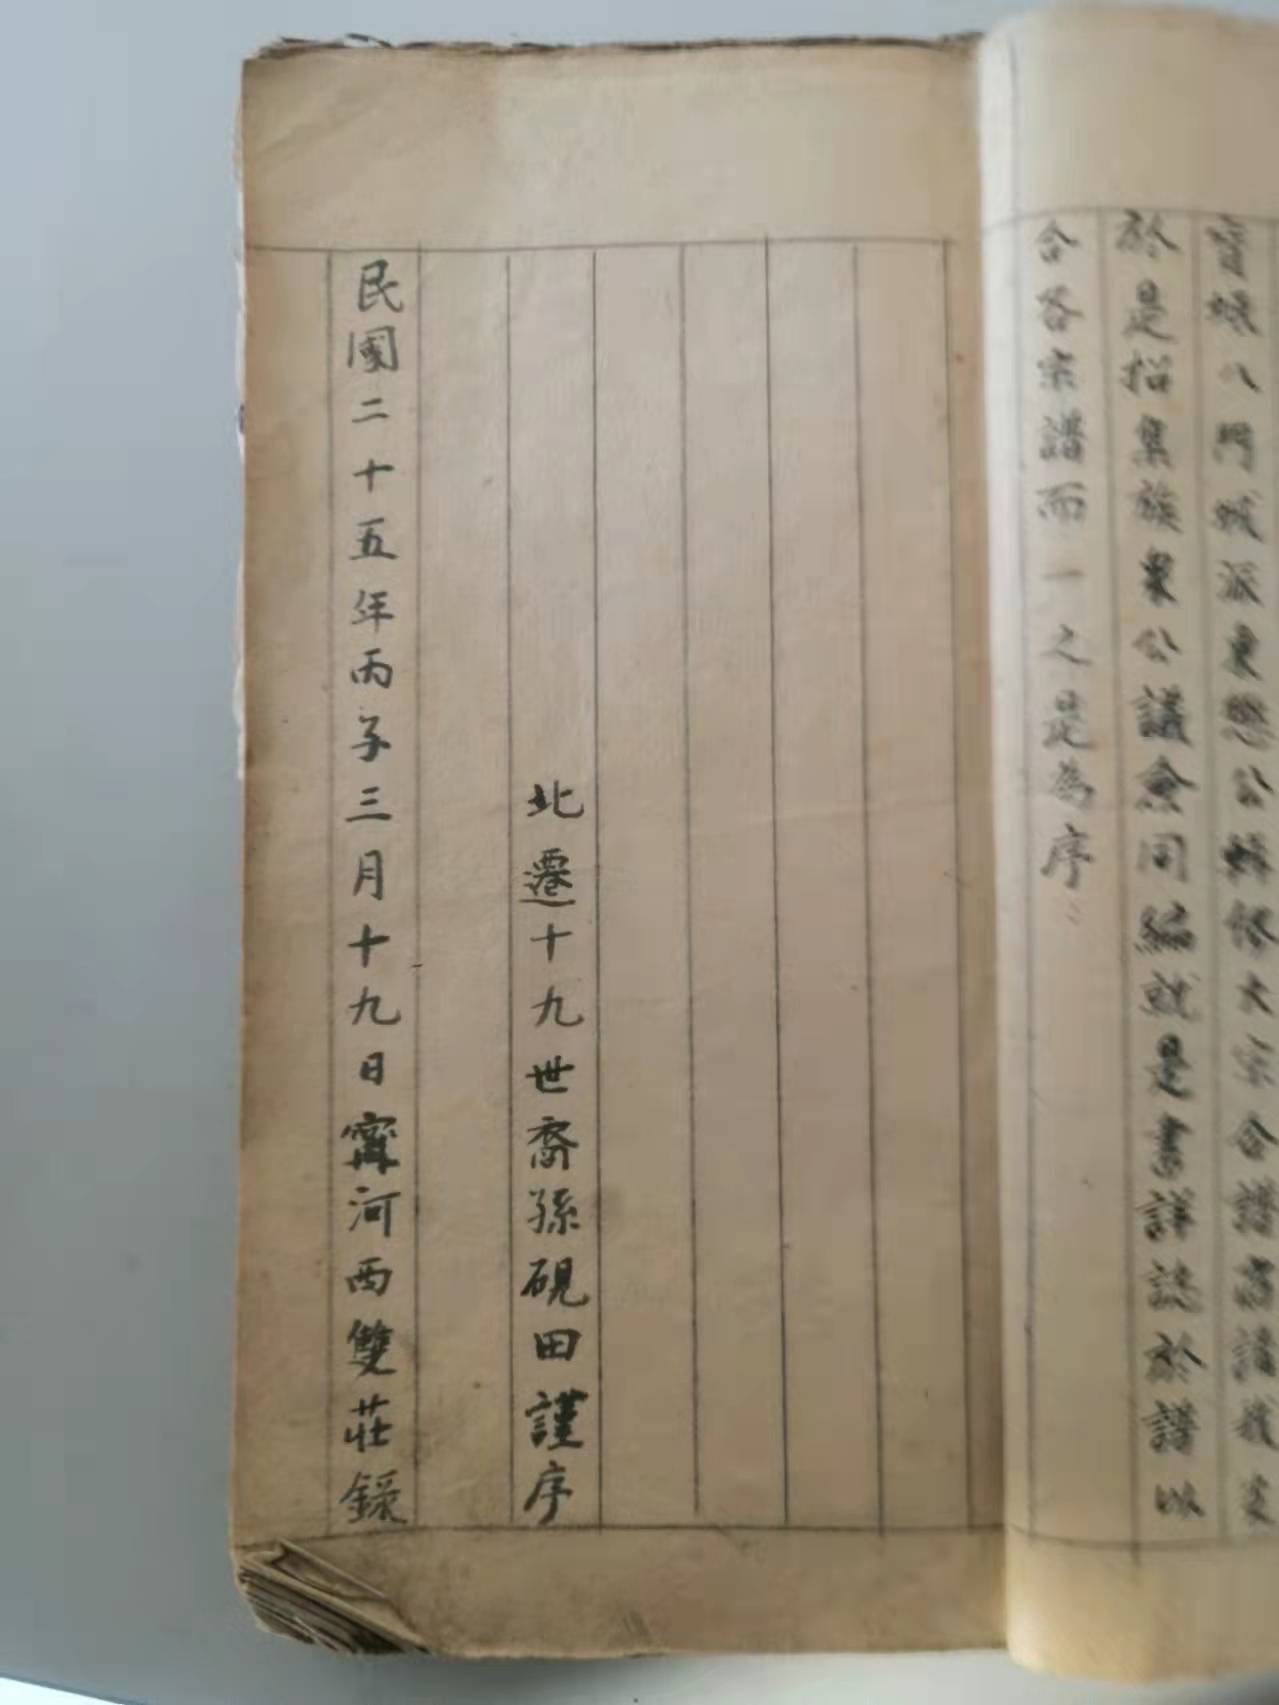 八門城派東懋公輯修大宗合譜
於是招集族衆公議僉同編就是書詳誌於譜以
合各宗譜而一之是為序
北遷十九世裔孫硯田謹序
民國二十五年丙子三月十九日寗河西雙莊錄